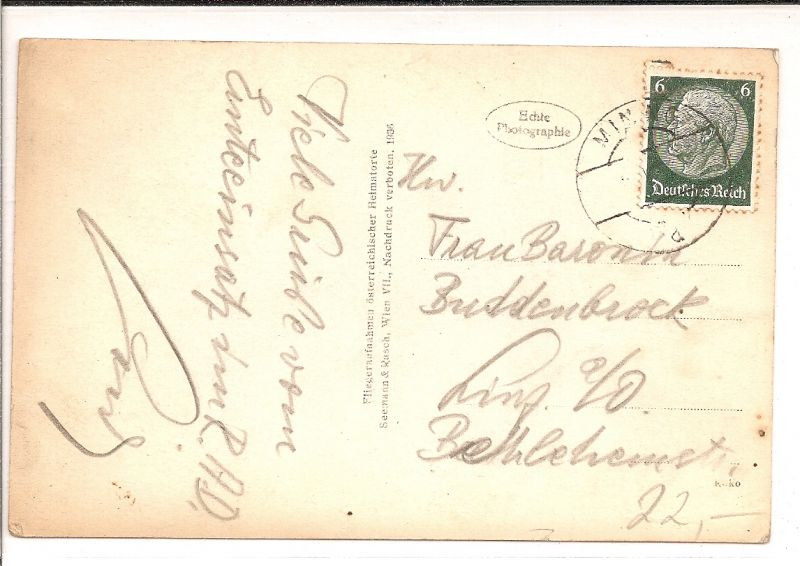 Viele Grüße vom
Ernteeinsatz im R.A.D,
Fliegeraufnahmen österreichischer Heimatorte
Seemann & Rasch, Wien VII., Nachdruck verboten. 1936
Echte
Photographie
6 6
Deutsches Reich
MIN
Hw.
Frau Baronin
Buddenbrock
Linz a/D.
Bethlehemstr.
22,-